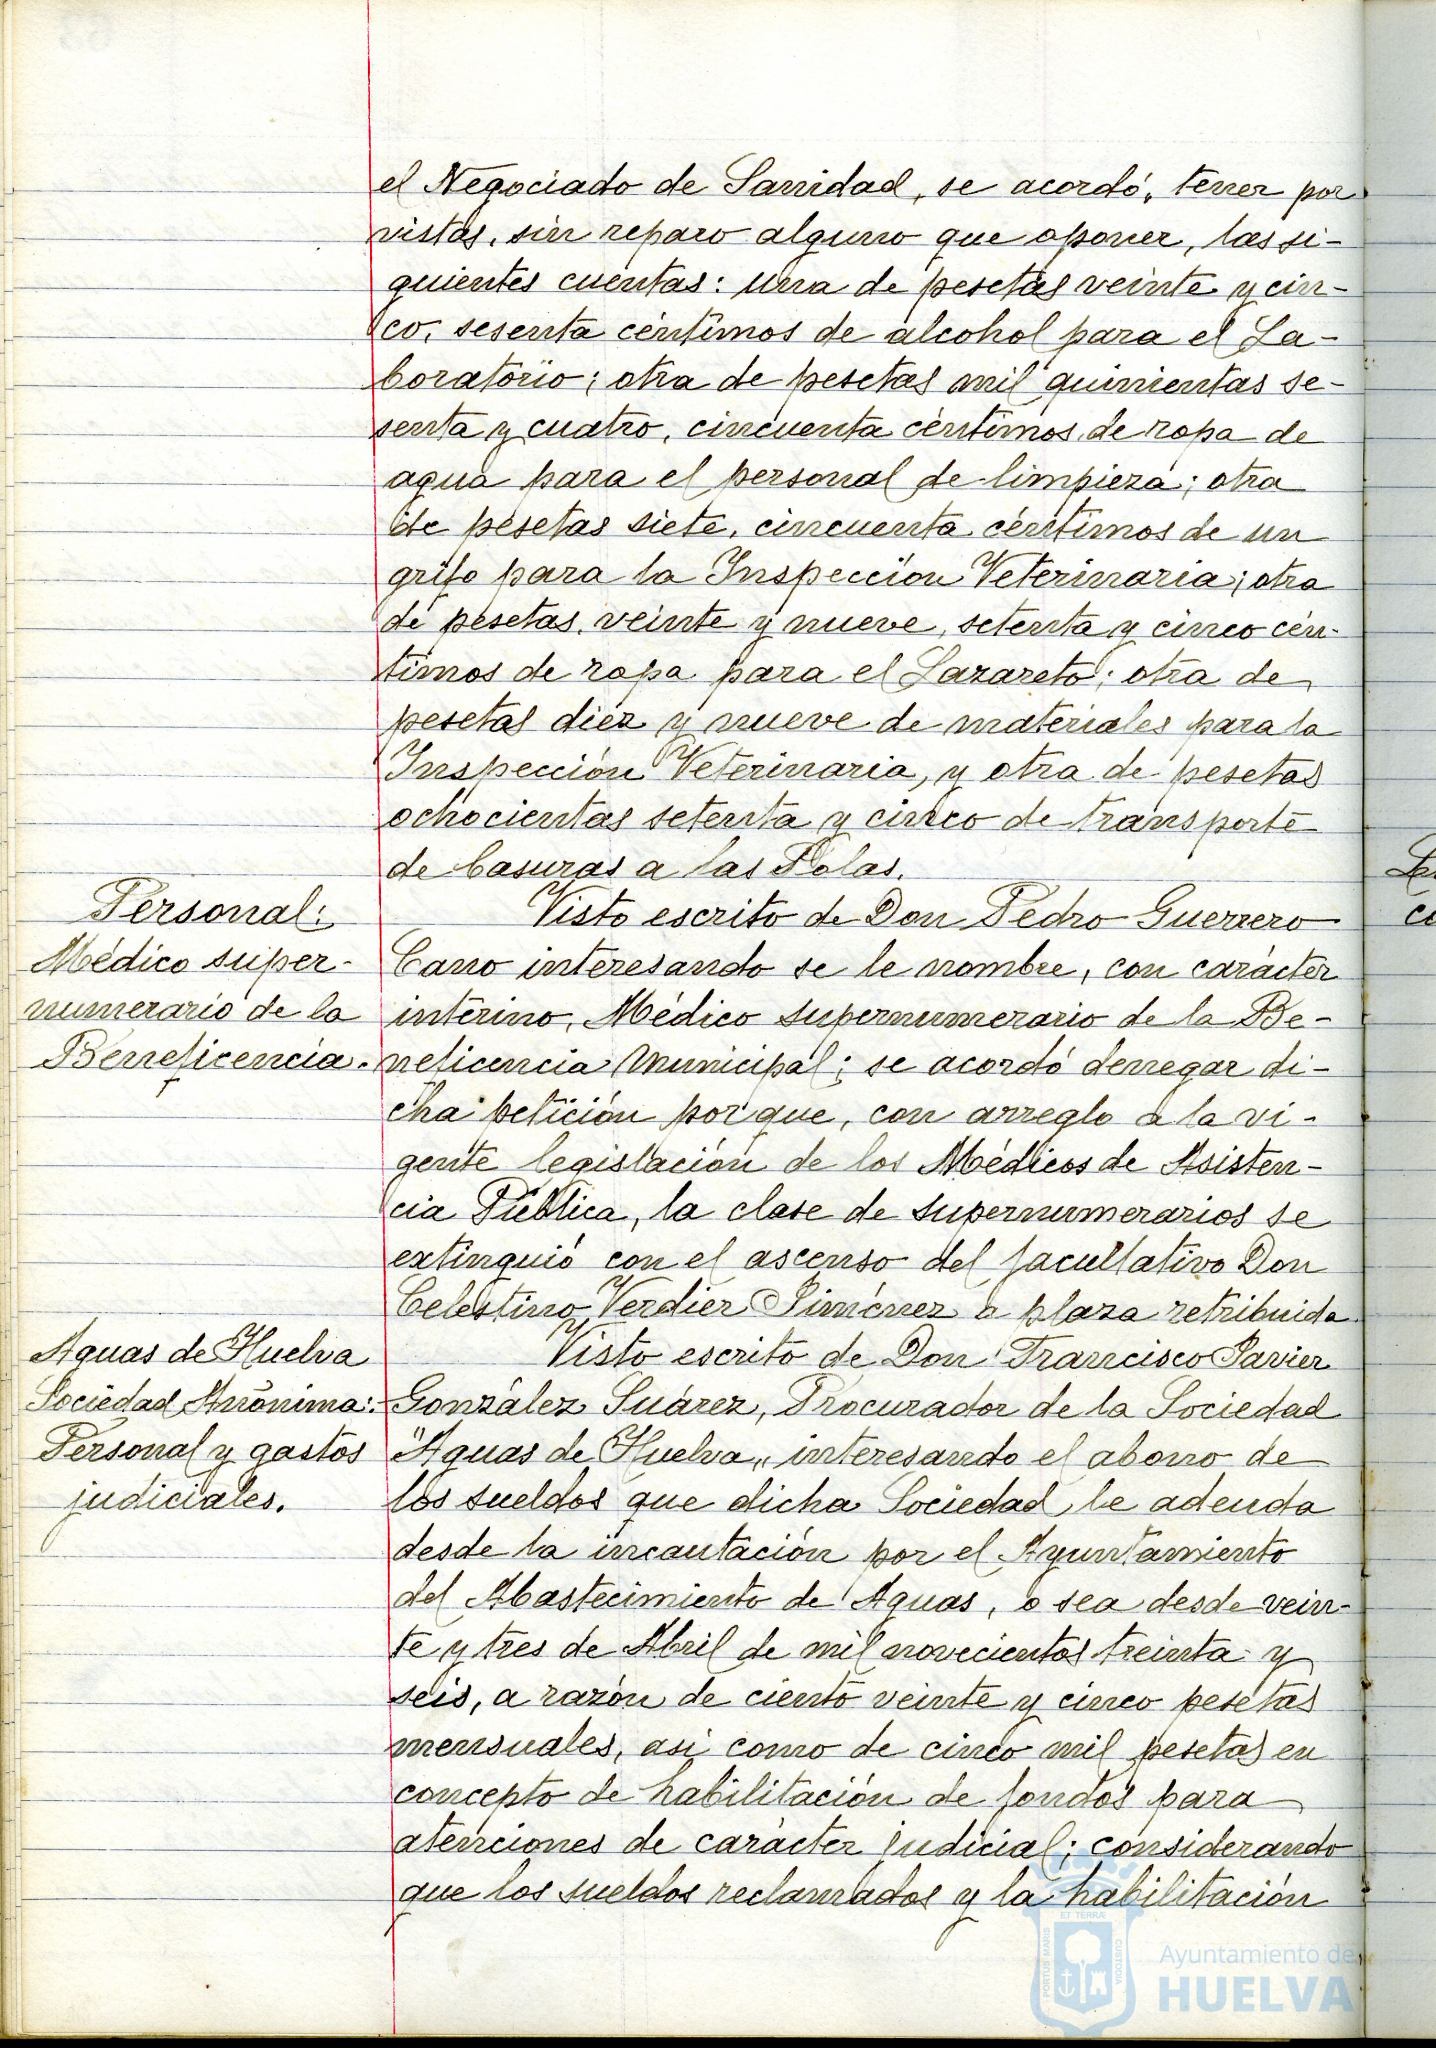 el Negociado de Sanidad, se acordó, tener por
vistas, sin reparo alguno que oponer, las si-
guientes cuentas: una de pesetas veinte y cin-
co, sesenta céntimos de alcohol para el La-
boratorio; otra de pesetas mil quinientas se-
senta y cuatro, cincuenta céntimos, de ropa de
agua para el personal de limpieza; otra
de pesetas siete, cincuenta céntimos de un
grifo para la Inspección Veterinaria; otra
de pesetas, veinte y nueve, setenta y cinco cén-
timos de ropa para el Lazareto; otra de
pesetas diez y nueve de materiales para la
Inspección Veterinaria, y otra de pesetas
ochocientas setenta y cinco de transporte
de basuras a las Polas.
Personal:
Médico super-
numerario de la
Beneficencia.
Visto escrito de Don Pedro Guerrero
Cano interesando se le nombre, con carácter
interino, Médico supernumerario de la Be-
neficencia Municipal; se acordó denegar di-
cha petición porque, con arreglo a la vi-
gente legislación de los Médicos de Asisten-
cia Pública, la clase de supernumerarios se
extinguió con el ascenso del facultativo Don
Celestino Verdier Jiménez a plaza retribuida.
Aguas de Huelva
Sociedad Anónima:
Personal y gastos
judiciales.
Visto escrito de Don Francisco Javier
González Suárez, Procurador de la Sociedad
"Aguas de Huelva", interesando el abono de
los sueldos que dicha Sociedad le adeuda
desde la incautación por el Ayuntamiento
del Abastecimiento de Aguas, o sea desde vein-
te y tres de Abril de mil novecientos treinta y
seis, a razón de ciento veinte y cinco pesetas
mensuales, asi como de cinco mil pesetas en
concepto de habilitación de fondos para
atenciones de carácter judicial; considerando
que los sueldos reclamados y la habilitación
PORTUS MARIS
ET TERRAE
CUSTODIA
Ayuntamiento de
HUELVA